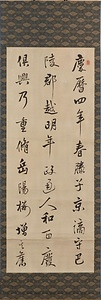 慶曆四年春滕子京謫守巴
陵郡越明年政通人和百廢
俱興乃重修岳陽樓增其舊